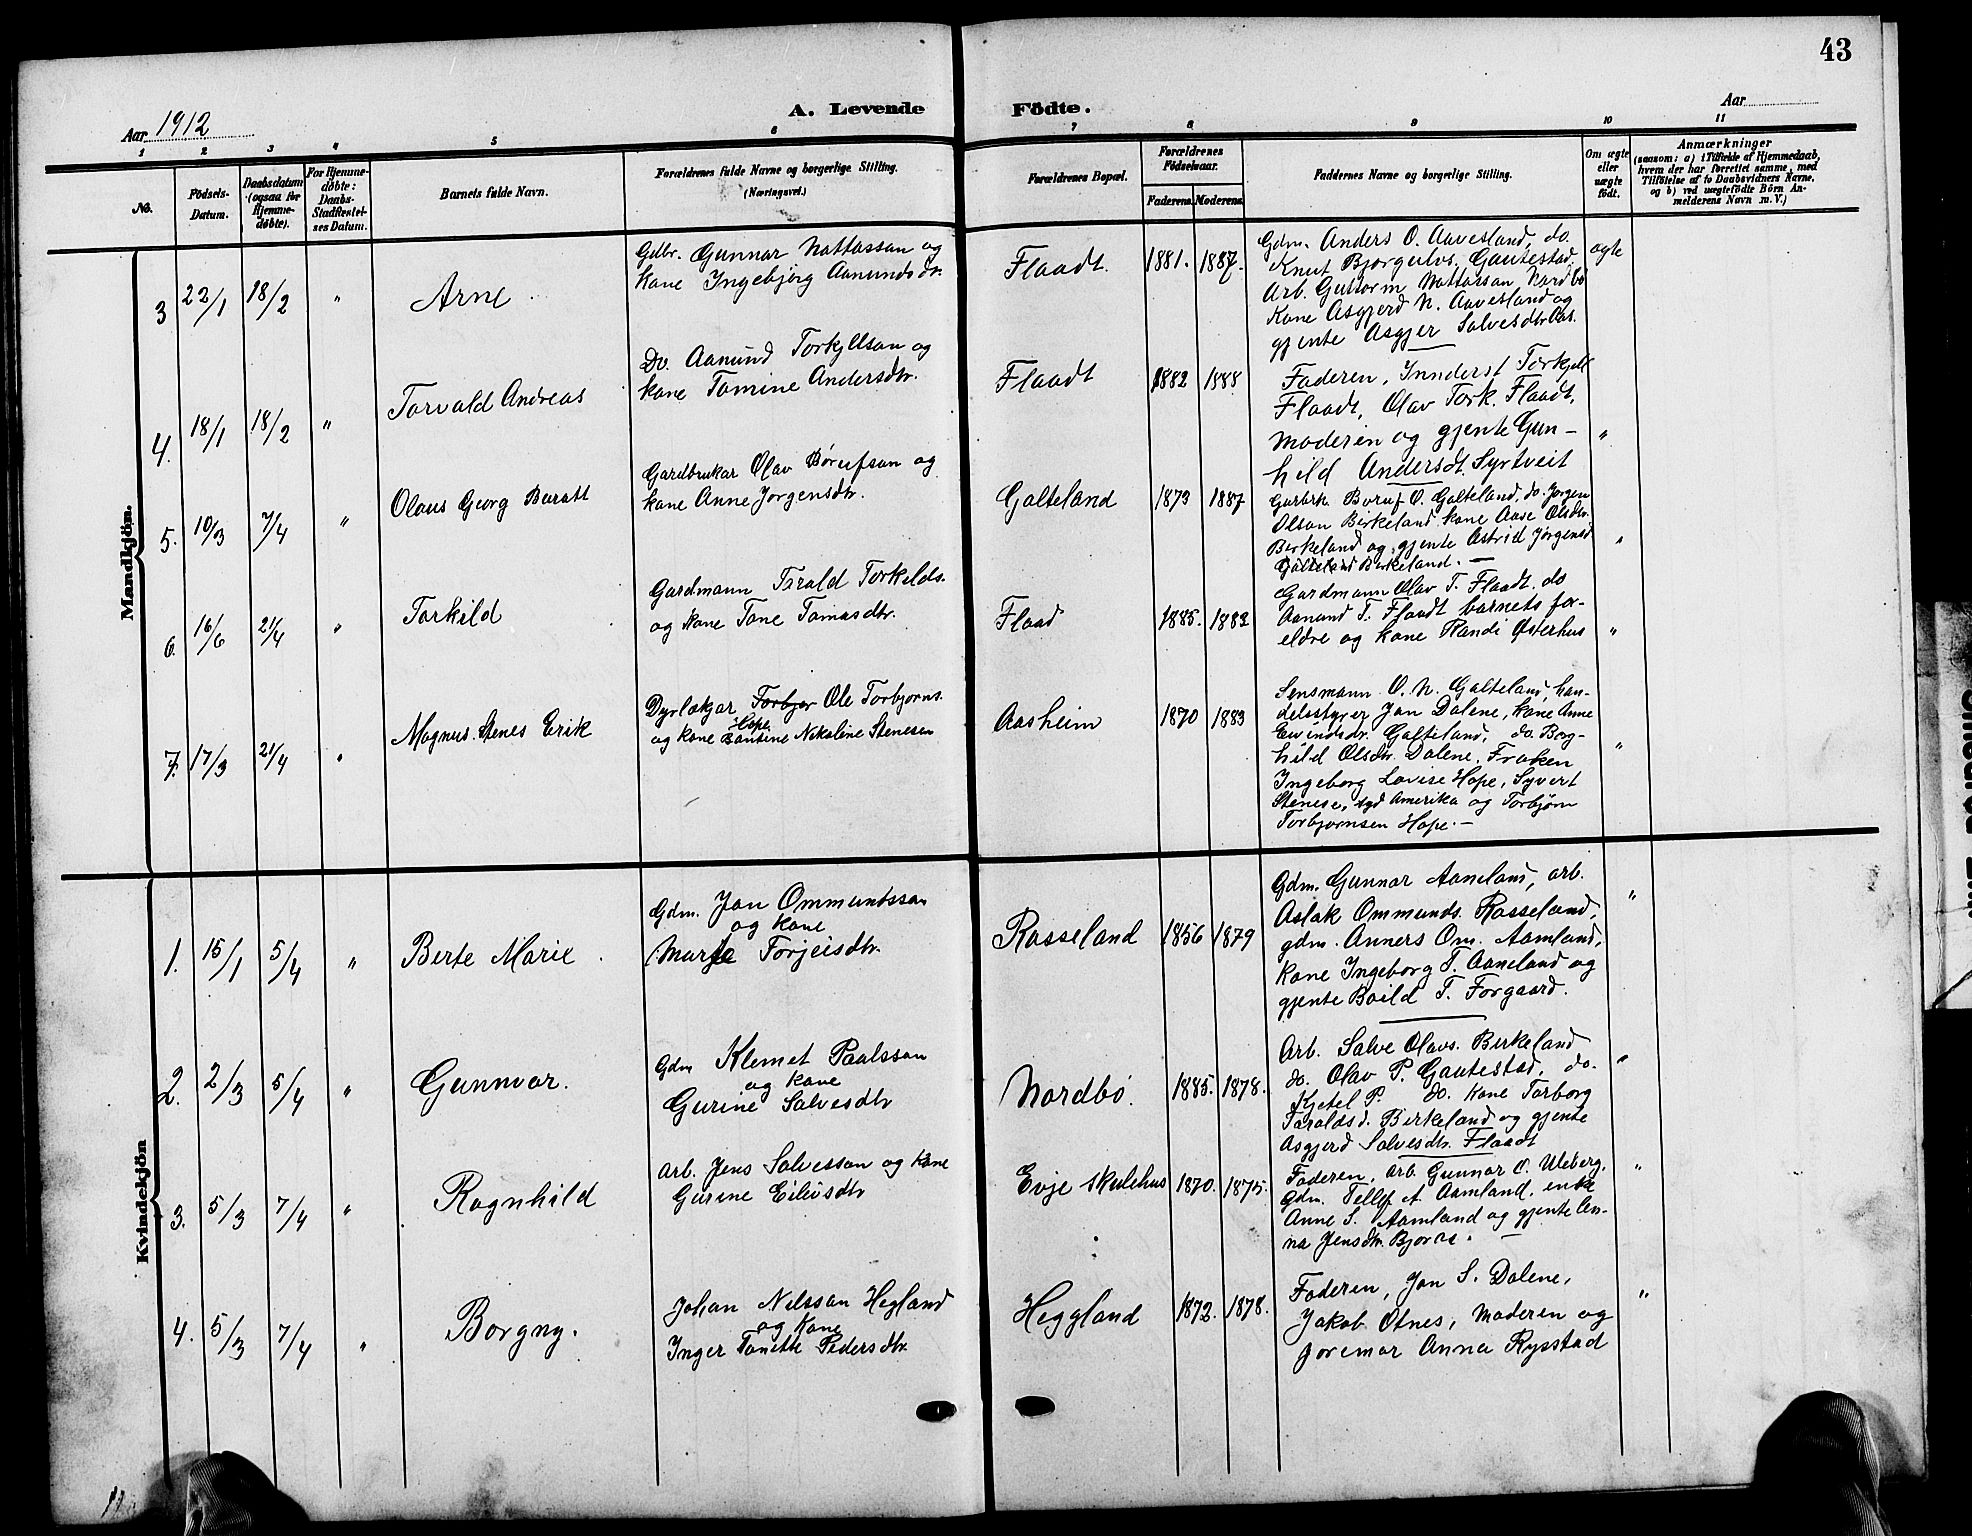 43
Aar 1912
A. Levende Födte.
Aar
1 2 3 4 5 6 7 8 9 10 11
No.
Födsels-
Datum.
Daabsdatum
(ogsaa for
Hjemme-
døbte).
For Hjemme-
døbte:
Daabs-
Stadfestel-
ses Datum.
Barnets fulde Navn.
Forældrenes fulde Navne og borgerlige Stilling.
(Næringsvei.)
Forældrenes Bopæl.
Forældrenes
Födselsaar.
Faderens. Moderens.
Faddernes Navne og borgerlige Stilling.
Om ægte
eller
uægte
født.
Anmærkninger
(saasom: a) i Tilfælde af Hjemmedaab,
hvem der har forrettet samme, med
Tilføielse af to Daabsvidners Navne,
og b) ved uægtefødte Börn An-
melderens Navn m. V.)
Mandkjön.
3 22/1 18/2 " Arne
Gdbr. Gunnar Nattassan og
kone Ingebjørg Aanundsdr.
Flaadt. 1881. 1887.
Gdm. Anders O. Aavesland, do.
Knut Bjorgulvs. Gautestad,
Arb. Guttorm Nattassan Nordbø
Kone Asgjerd N. Aavesland og
gjente Asgjer Salvesdtr Aas.
ægte
4. 18/1 18/2 " Torvald Andreas
Do. Aanund Torkjellsan og
kone Tomine Andersdtr.
Flaadt 1882 1888
Faderen, Innderst Torkjell
Flaadt, Olav Tork. Flaadt,
moderen og gjente Gun-
hild Andersdt. Syrtveit
"
5. 10/3 7/4 " Olaus Georg Buratt
Gardbrukar Olav Børufsan og
kone Anne Jørgensdtr.
Galteland 1873 1887
Garbrk. Boruf O. Galteland, do. Jørgen
Olsan Birkeland kone Aase Olsdtr.
Birkeland og gjente Astrid Jørgensd
Galteland Birkeland.
"
6. 16/6 21/4 " Torkild
Gardmann Tarald Torkilds.
og kone Tone Tomasdtr.
Flaad 1885. 1882
Gardmann Olav T. Flaadt. do
Aanund T. Flaadt barnets for-
eldre og kone Randi Østerhus
"
7. 17/3 21/4 " Magnus Stenes Erik
Dyrlækjar Torbjør Ole Torbjørns.
Hope
og kone Bantine Nikoline Stenesen
Aasheim 1870 1883
Lensmann O. N. Galteland, han-
delsstyrer Jon Dalene, kone Anne
Eivindsdr. Galteland, do. Borg-
hild Olsdtr. Dalene, Frøken
Ingeborg Lovise Hope, Syvert
Stenese, syd Amerika og Torbjørn
Torbjørnsen Hope.
"
Kvindekjön
1. 15/1 5/4 " Berte Marie
Gdm. Jon Ommundssan
og kone
Marte Torjeisdtr.
Rosseland 1856 1879
Gdm. Gunnar Aaneland, arb.
Aslak Ommunds. Rosseland,
gdm. Anners Om. Aamland,
kone Ingeborg T. Aaneland og
gjente Boild T. Forgaard.
"
2. 2/3 5/4 " Gunnvor.
Gdm Klemet Paalssan
og kone
Gurine Salvesdtr
Nordbø. 1885. 1878.
Arb. Salve Olavs. Birkeland
do. Olav P. Gautestad, do.
Kjetel P. do. kone Torborg
Taraldsd. Birkeland og gjente
Asgjerd Salvesdtr. Flaadt
"
3. 5/3 7/4 " Ragnhild
Arb. Jens Salvessan og kone
Gurine Eilevsdtr
Evje skulehus 1870. 1875.
Faderen, arb. Gunnar O. Uleberg,
Gdm. Tellef A Aamland, enke
Anne S. Aamland og gjente An-
na Jensdtr. Bjoraa.
"
4. 5/3 7/4 " Borgny.
Johan Nilssan Hegland
og kone
Inger Tonette Pedersdtr.
Heggland 1872. 1878.
Faderen, Jon S. Dalene,
Jakob Otnes, Moderen og
joremor Anna Rysstad
"